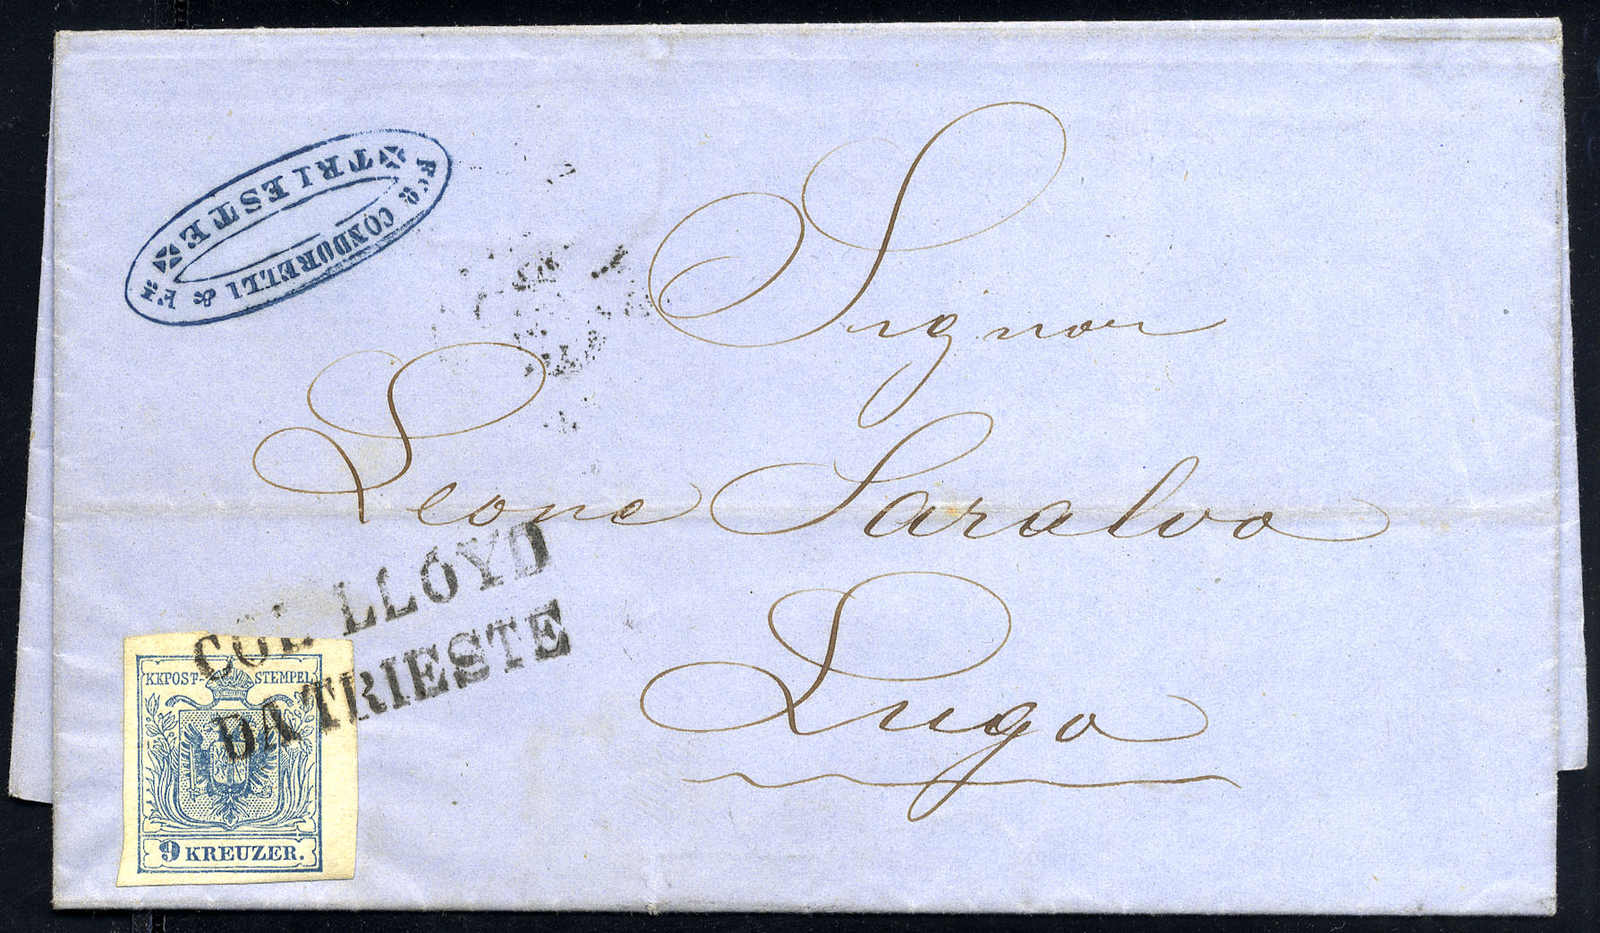 TRIESTE
CONDURELLI &
Signor
Leone Saralvo
Lugo
COL LLOYD
DA TRIESTE
KKPOST-STEMPEL
9 KREUZER.